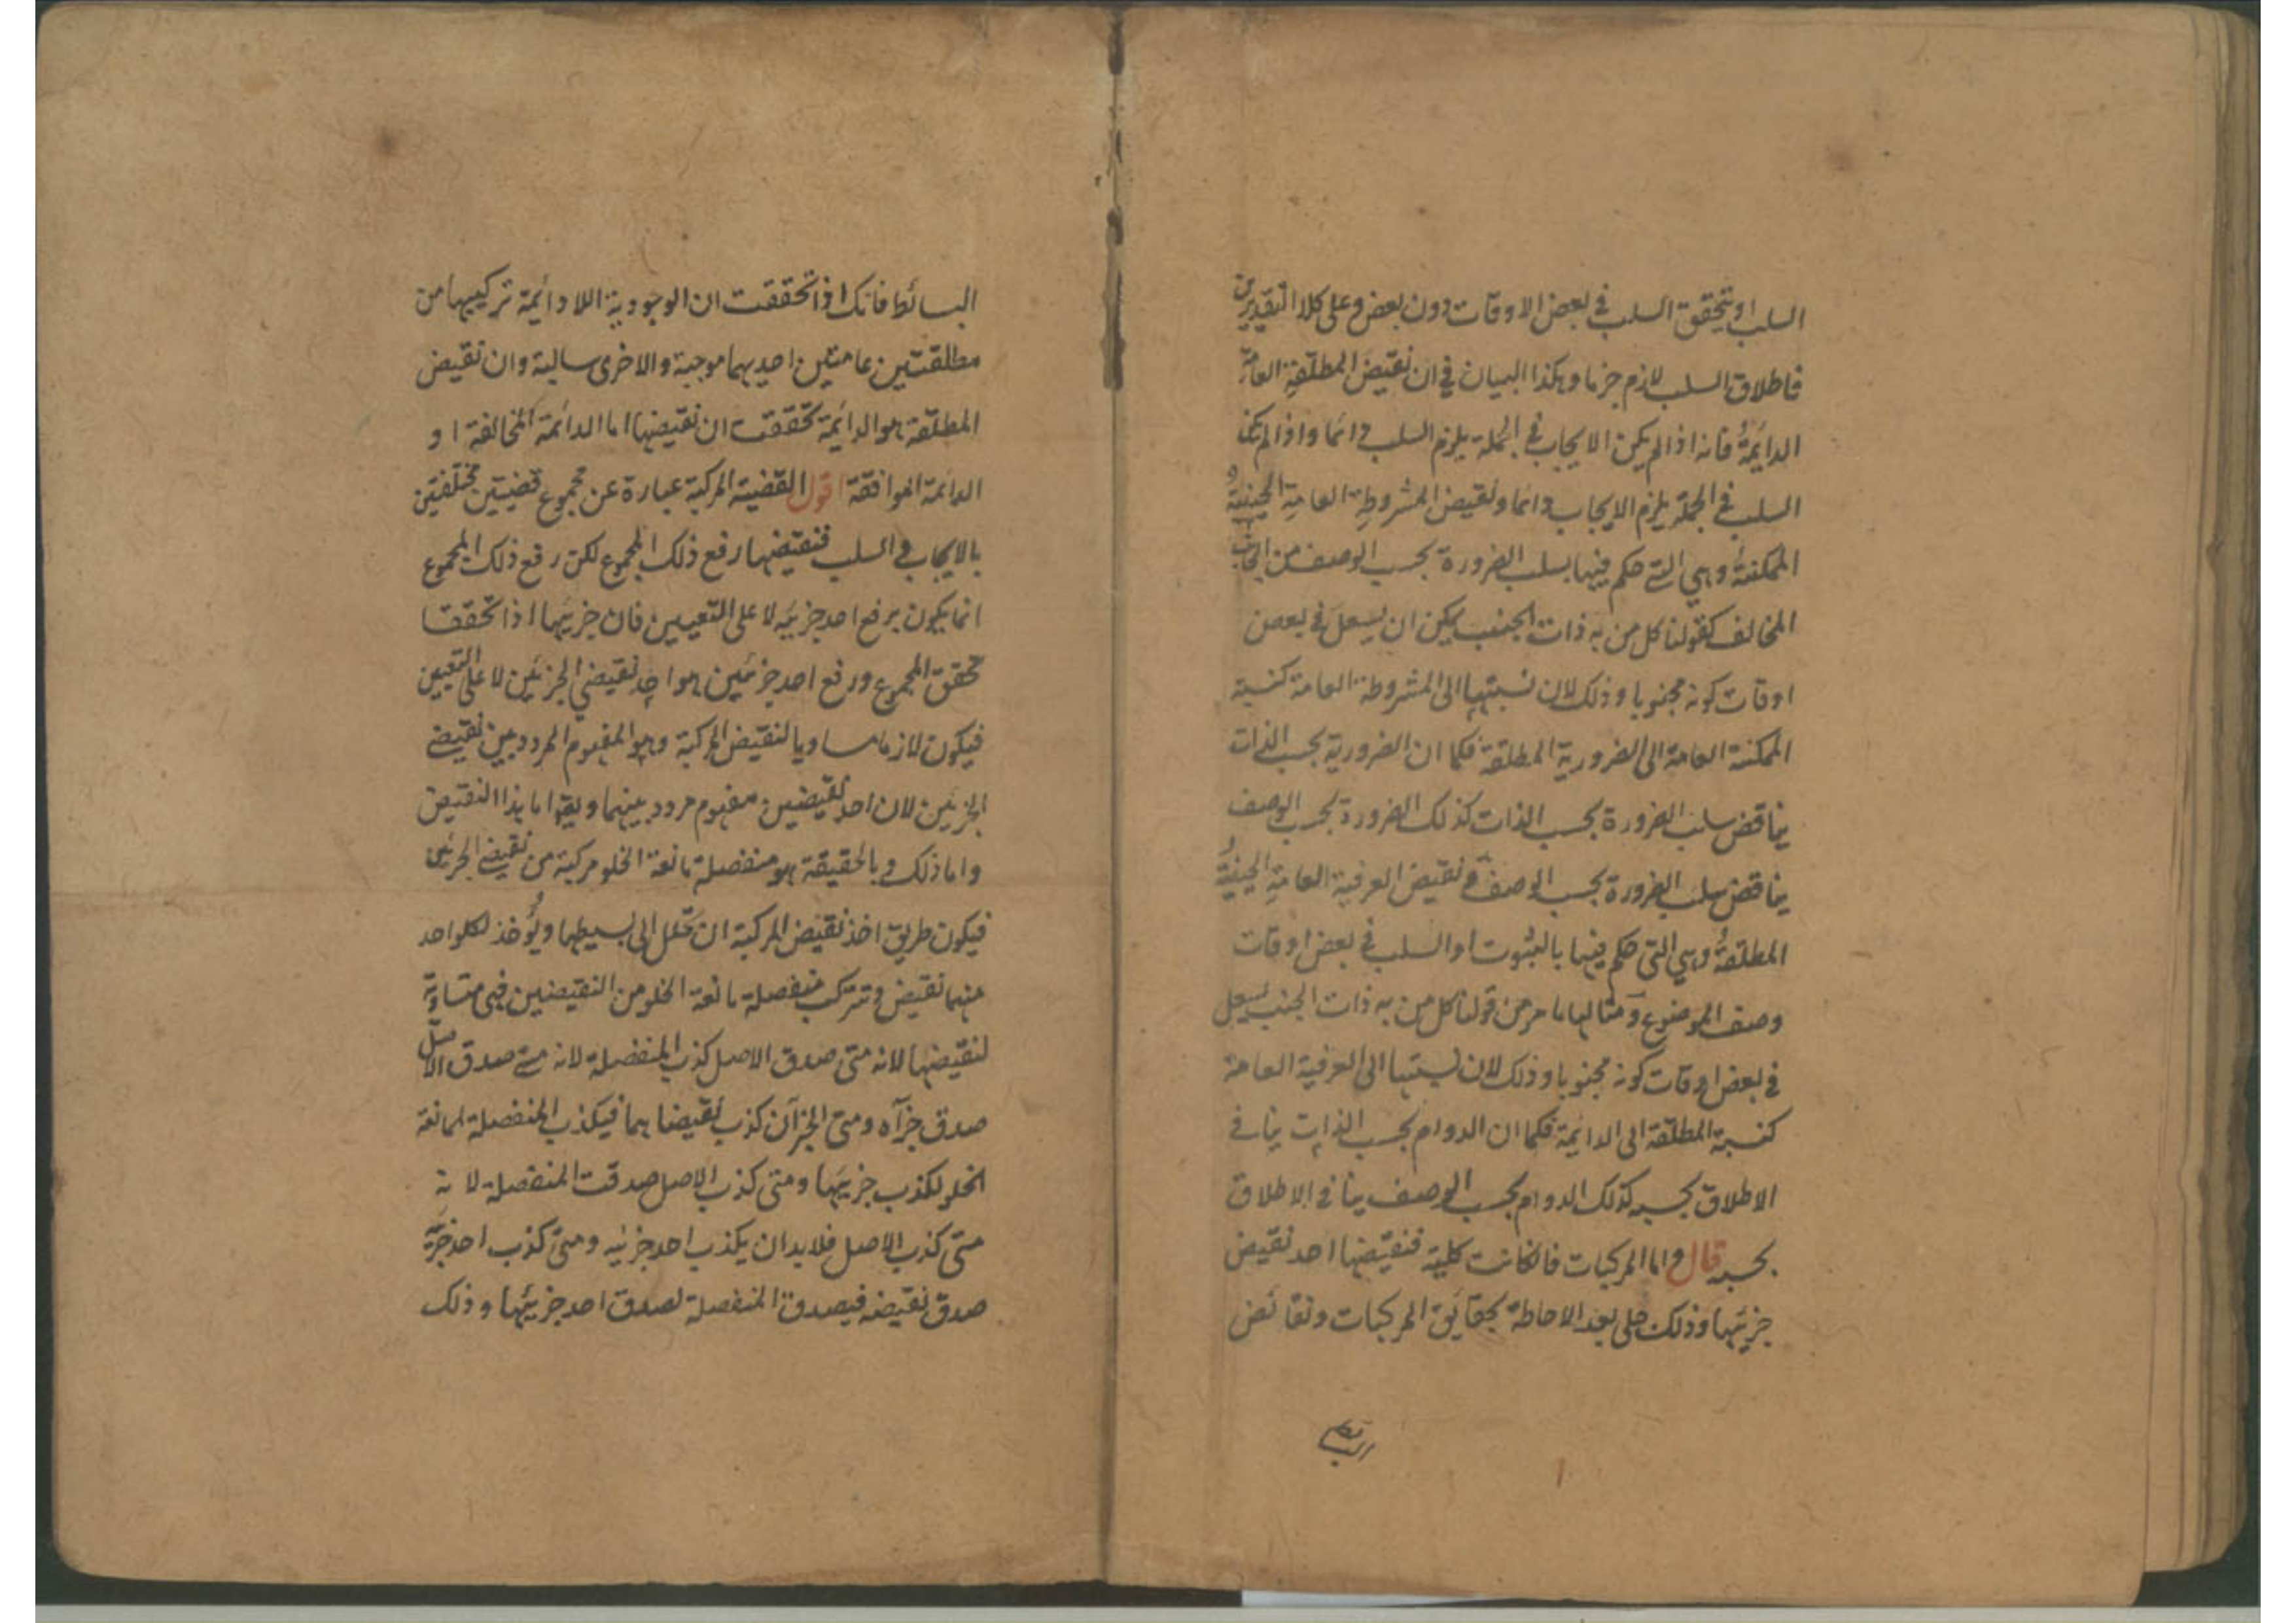 السلب او يتحقق السلب في بعض الاوقات دون بعض وعلى كلا التقديرين
فاطلاق السلب لازم جزما وهكذا البيان في ان نقيض المطلقة العامة
الدائمةُ فانه اذا لم يكن الايجاب في الجملة يلزم السلب دائما واذا لم يكن
السلب في الجملة يلزم الايجاب دائما ونقيض المشروطة العامةِ الحينيةُ
الممكنةُ وهي التي حكم فيها بسلب الضرورة بحسب الوصف من الجانب
المخالف كقولنا كل من به ذات الجنب يمكن ان يسعل في بعض
اوقات كونه مجنوبا وذلك لان نسبتها الى المشروطة العامة كنسبة
الممكنة العامة الى الضرورية المطلقة فكما ان الضرورية بحسب الذات
يناقض سلب الضرورة بحسب الذات كذلك الضرورة بحسب الوصف
يناقض سلب الضرورة بحسب الوصف و نقيض العرفية العامةِ الحينيةُ
المطلقةُ وهي التي حكم فيها بالثبوت او السلب في بعض اوقات
وصف الموضوع ومثالها ما مر من قولنا كل من به ذات الجنب يسعل
في بعض اوقات كونه مجنوبا وذلك لان نسبتها الى العرفية العامة
كنسبة المطلقة الى الدائمة فكما ان الدوام بحسب الذات ينافي
الاطلاق بحسبه كذلك الدوام بحسب الوصف ينافي الاطلاق
بحسبه قال واما المركبات فان كانت كلية فنقيضها احد نقيض
جزئيها وذلك جلى بعد الاحاطة بحقايق المركبات ونقائض
البسائط فانك اذا تحققت ان الوجودية اللادائمة تركيبها من
مطلقتين عامتين احديهما موجبة والاخرى سالبة وان نقيض
المطلقة هو الدائمة تحققت ان نقيضها اما الدائمة المخالفة او
الدائمة الموافقة اقول القضية المركبة عبارة عن مجموع قضيتين مختلفتين
بالايجاب و السلب فنقيضها رفع ذلك المجموع لكن رفع ذلك المجموع
انما يكون برفع احد جزئيه لا على التعيين فان جزئيها اذا تحققا
تحقق المجموع ورفع احد جزئين هو احد نقيضي الجزئين لا على التعيين
فيكون لازما مساويا لنقيض المركبة وهو المفهوم المردد بين نقيضى
الجزئين لان احد نقيضين مفهوم مردد بينهما ويقد اما هذا النقيض
واما ذلك و بالحقيقة هو منفصلة مانعة الخلو مركبة من نقيضى الجزئين
فيكون طريق اخذ نقيض المركبة ان تحلل الى بسيطها ويُؤخذ لكلواحد
منهما نقيض و تتركب منفصلة مانعة الخلو من النقيضين فهي متساوية
لنقيضها لانه متى صدق الاصل كذب المنفصلة لانه متى صدق الاصل
صدق جزآه ومتى الجزآن كذب نقيضاهما فيكذب المنفصلة المانعة
الخلو لكذب جزئيها ومتى كذب الاصل صدقت المنفصلة لانه
متى كذب الاصل فلا بد ان يكذب احد جزئيه ومتى كذب احد جزئيه
صدق نقيضه فيصدق المنفصلة لصدق احد جزئيها وذلك